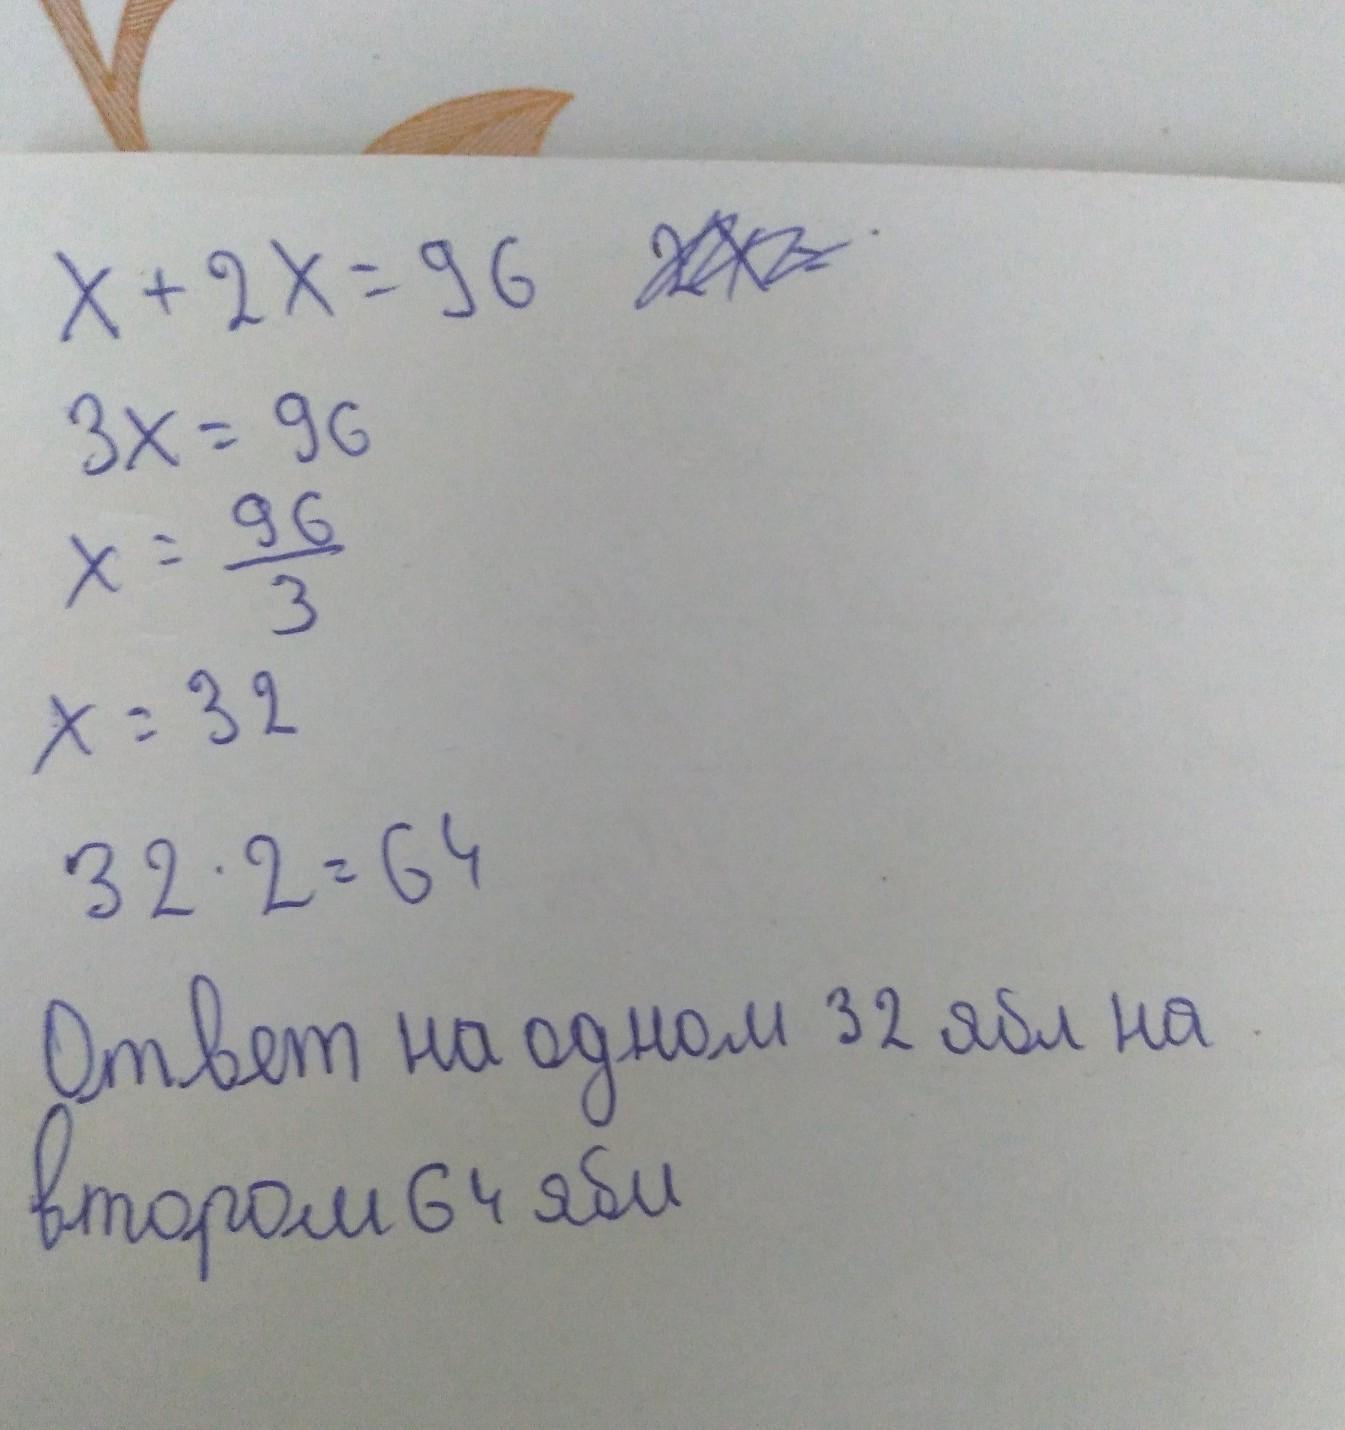 x + 2x = 96
3x = 96
x = 96/3
x = 32
32 · 2 = 64
Ответ на одном 32 ябл на
втором 64 ябл